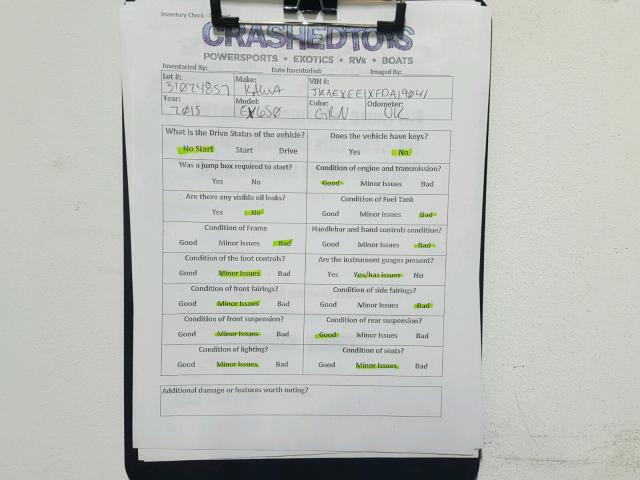 Inventory Check -
CRASHEDTOYS
POWERSPORTS • EXOTICS • RVs • BOATS
Inventoried By: Date Inventoried: Imaged By:
Lot #: 31024857 Make: KAWA VIN #: JKAEXEE1XFDA19041
Year: 2015 Model: EX650 Color: GRN Odometer: UK
What is the Drive Status of the vehicle? Does the vehicle have keys?
No Start Start Drive Yes No
Was a jump box required to start? Condition of engine and transmission?
Yes No Good Minor Issues Bad
Are there any visible oil leaks? Condition of Fuel Tank
Yes No Good Minor Issues Bad
Condition of Frame Handlebar and hand controls condition?
Good Minor Issues Bad Good Minor Issues Bad
Condition of the foot controls? Are the instrument guages present?
Good Minor Issues Bad Yes Yes/has issues No
Condition of front fairings? Condition of side fairings?
Good Minor Issues Bad Good Minor Issues Bad
Condition of front suspension? Condition of rear suspension?
Good Minor Issues Bad Good Minor Issues Bad
Condition of lighting? Condition of seats?
Good Minor Issues Bad Good Minor Issues Bad
Additional damage or features worth noting?